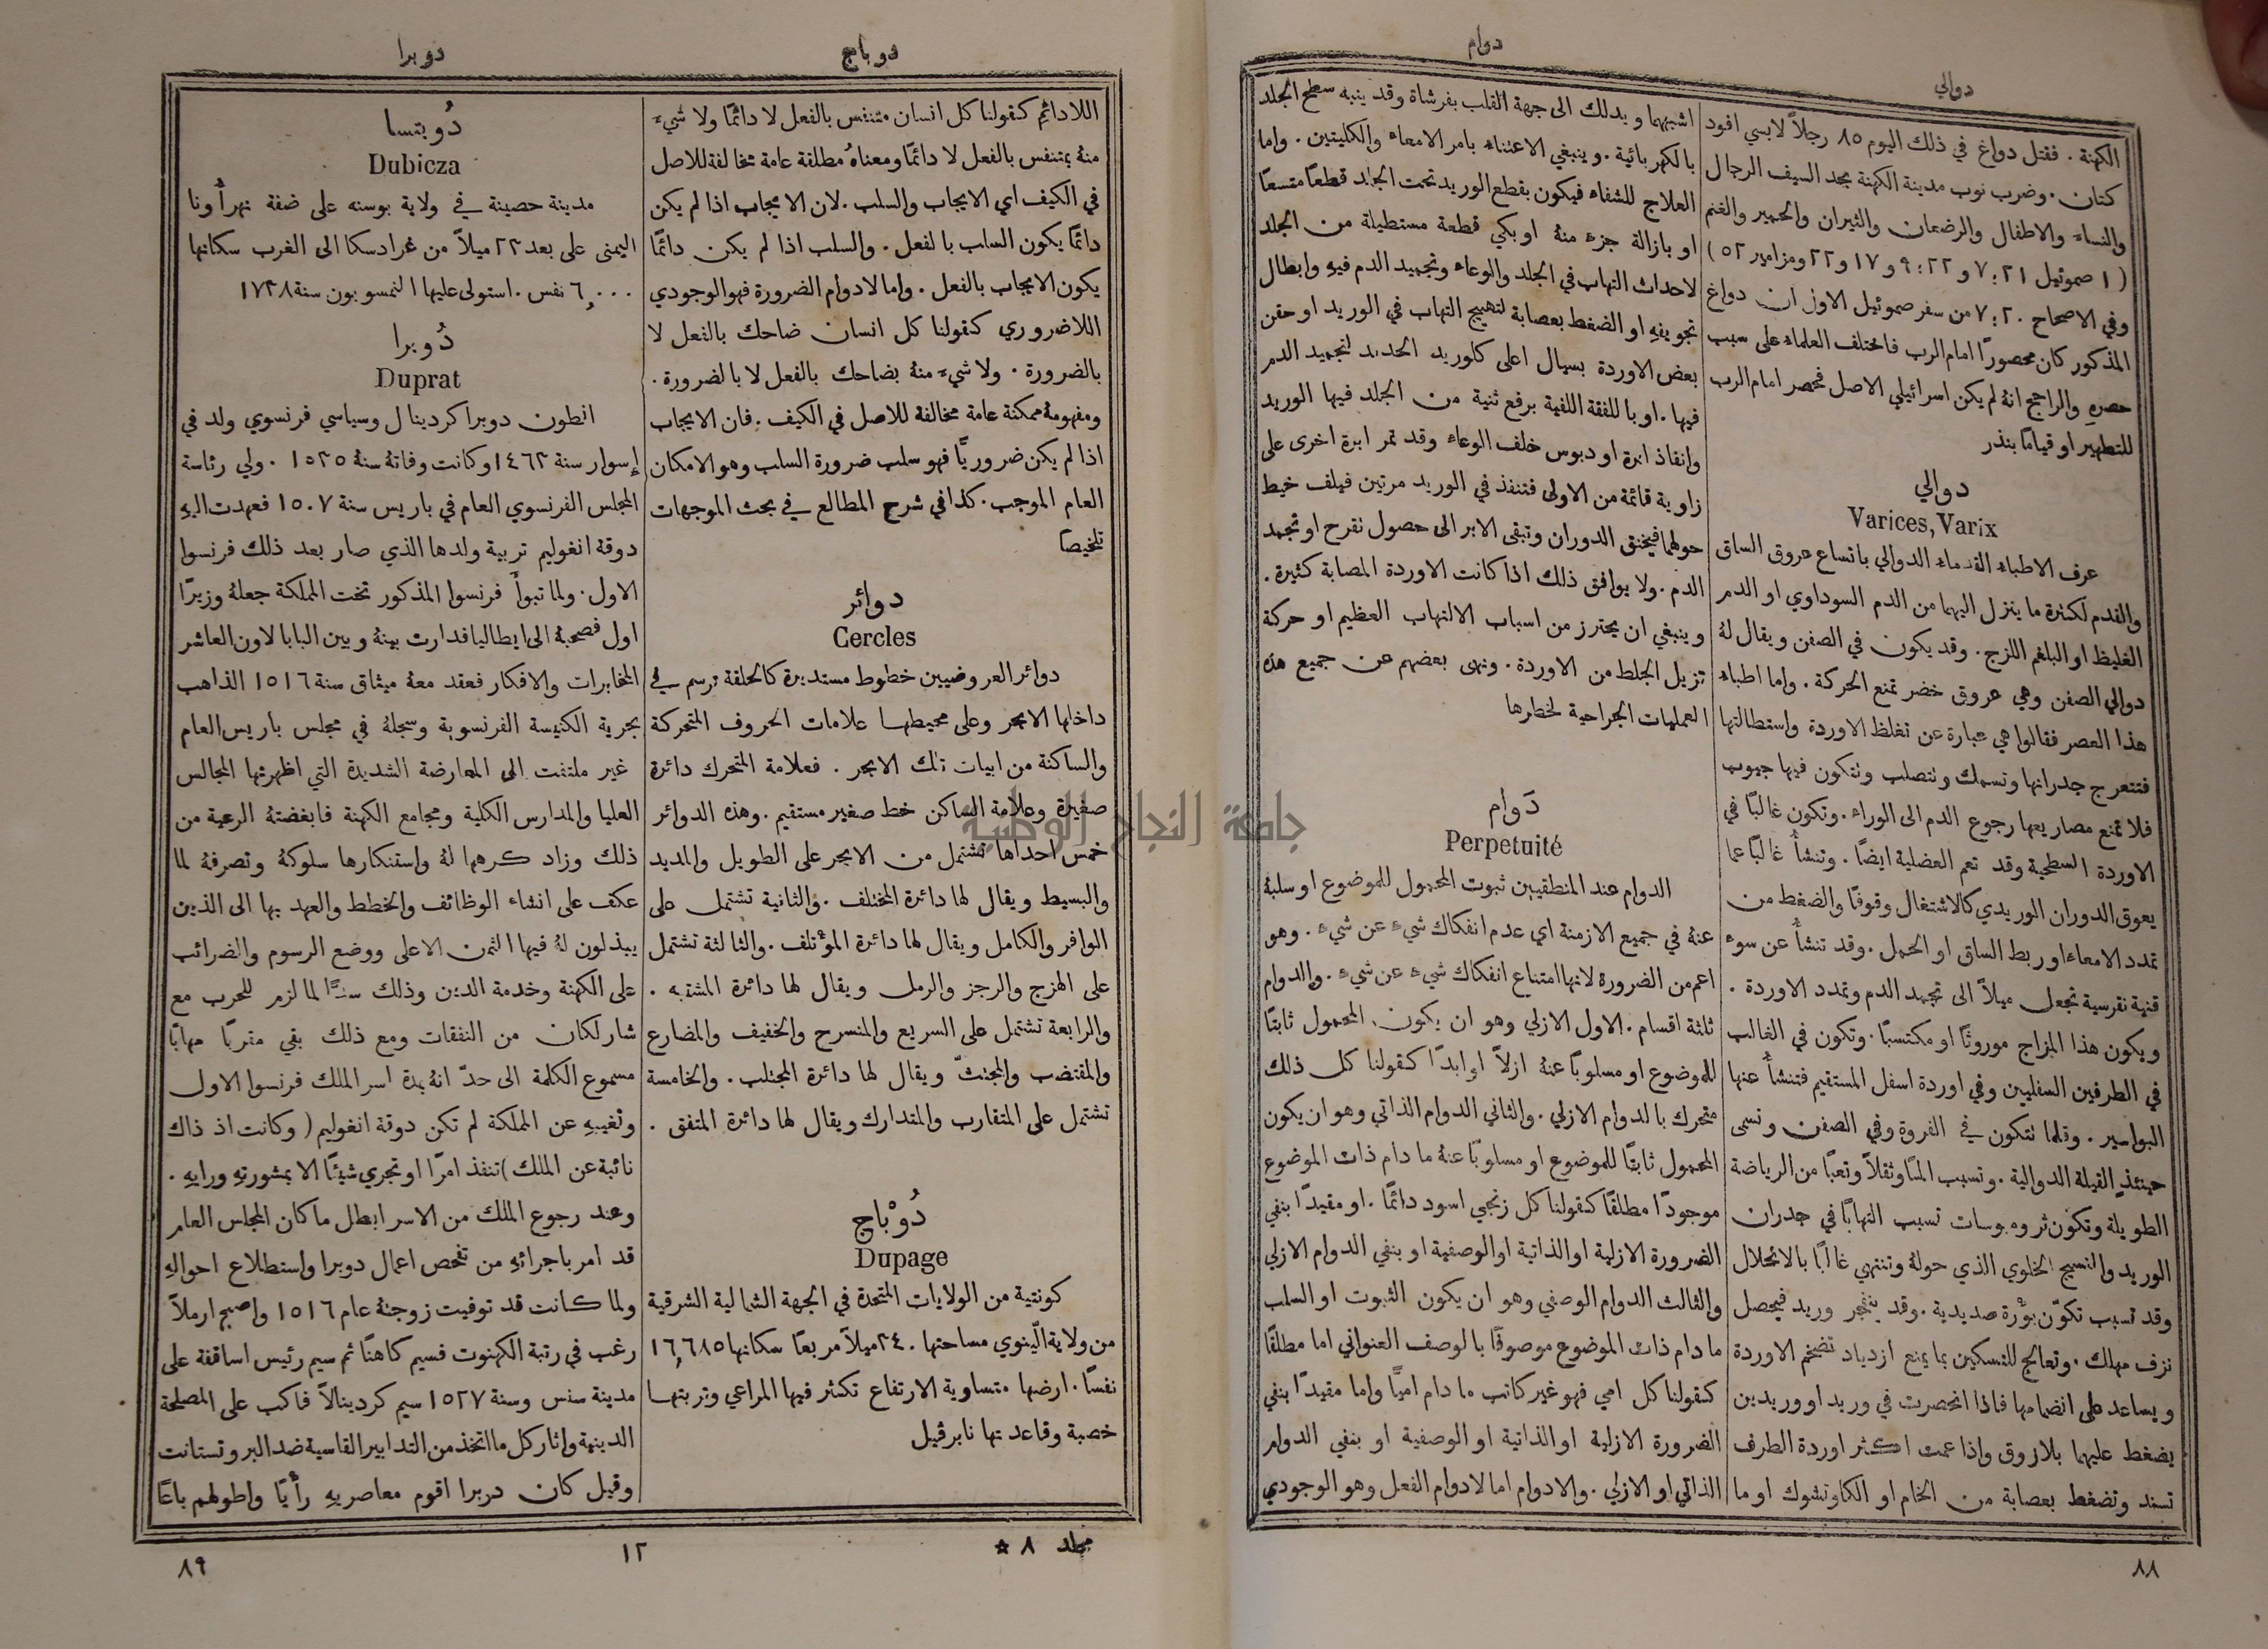 دوالي
دوام
الكهنة . فقتل دواغ في ذلك اليوم ٨٥ رجلاً لابسي افود
كتان . وضرب نوب مدينة الكهنة بحد السيف الرجال
والنساء والاطفال والرضعان والثيران والحمير والغنم
(١ صموئيل ٢١ : ٧ و ٢٢ : ٩ و ١٧ و ٢٢ ومزامير ٥٢)
وفي الاصحاح ٢٠ : ٧ من سفر صموئيل الاول ان دواغ
المذكور كان محصورًا امام الرب فاختلف العلماء على سبب
حصره والراجح انهُ لم يكن اسرائيلي الاصل فحصر امام الرب
للتطهير او قيامًا بنذر
دوالي
Varices, Varix
عرف الاطباء القدماء الدوالي باتساع عروق الساق
والقدم لكثرة ما ينزل اليهما من الدم السوداوي او الدم
الغليظ او البلغم اللزج . وقد يكون في الصفن ويقال لهُ
دوالي الصفن وهي عروق خضر تمنع الحركة . واما اطباء
هذا العصر فقالوا هي عبارة عن تغلظ الاوردة واستطالتها
فتتعرج جدرانها وتسمك وتتصلب وتتكون فيها جيوب
فلا تمنع مصاريعها رجوع الدم الى الوراء . وتكون غالبًا في
الاوردة السطحية وقد تعم العضلية ايضًا . وتنشأ غالبًا عما
يعوق الدوران الوريدي كالاشتغال وقوفًا والضغط من
تمدد الامعاء او ربط الساق او الحمل . وقد تنشأ عن سوء
قنية نقرسية تجعل ميلاً الى تجمد الدم وتمدد الاوردة .
ويكون هذا المزاج موروثًا او مكتسبًا . وتكون في الغالب
في الطرفين السفليين وفي اوردة اسفل المستقيم فتنشأ عنها
البواسير . وقلما تتكون في الفروة وفي الصفن وتسمى
حينئذٍ القيلة الدوالية . وتسبب المًا وثقلاً وتعبًا من الرياضة
الطويلة وتكوّن ثر ومبوسات تسبب التهابًا في جدران
الوريد والنسيج الخلوي الذي حولهُ وتنتهي غالبًا بالانحلال
وقد تسبب تكوّن بؤرة صديدية . وقد ينفجر وريد فيحصل
نزف مهلك . وتعالج للتسكين بما يمنع ازدياد تضخم الاوردة
ويساعد على انضمامها فاذا انحصرت في وريد او وريدين
يضغط عليهما بلازوق واذا عمت اكثر اوردة الطرف
تسند وتضغط بعصابة من الخام او الكاوتشوك او ما
اشبهما ويدلك الى جهة القلب بفرشاة وقد ينبه سطح الجلد
بالكهربائية . وينبغي الاعتناء بامر الامعاء والكليتين . واما
العلاج للشفاء فيكون بقطع الوريد تحت الجلد قطعًا متسعًا
او بازالة جزء منهُ او بكي قطعة مستطيلة من الجلد
لاحداث التهاب في الجلد والوعاء وتجميد الدم فيهِ وابطال
تجويفهِ او الضغط بعصابة لتهييج التهاب في الوريد او حقن
بعض الاوردة بسيال اعلى كلوريد الحديد لتجميد الدم
فيها . او باللفقة اللفية برفع ثنية من الجلد فيها الوريد
وانفاذ ابرة او دبوس خلف الوعاء وقد تمر ابرة اخرى على
زاوية قائمة من الاولى فتنفذ في الوريد مرتين فيلف خيط
حولهما فيخنق الدوران وتبقى الابر الى حصول تقرح او تجمد
الدم . ولا يوافق ذلك اذا كانت الاوردة المصابة كثيرة .
وينبغي ان يحترز من اسباب الالتهاب العظيم او حركة
تزيل الجلط من الاوردة . ونهى بعضهم عن جميع هذه
العمليات الجراحية لخطرها
دَوام
Perpetuité
الدوام عند المنطقيين ثبوت المحمول للموضوع او سلبهُ
عنهُ في جميع الازمنة اي عدم انفكاك شيء عن شيء . وهو
اعم من الضرورة لانها امتناع انفكاك شيء عن شيء . والدوام
ثلاثة اقسام . الاول الازلي وهو ان يكون المحمول ثابتًا
للموضوع او مسلوبًا عنهُ ازلاً او ابدًا كقولنا كل ذلك
متحرك بالدوام الازلي . والثاني الدوام الذاتي وهو ان يكون
المحمول ثابتًا للموضوع او مسلوبًا عنهُ ما دام ذات الموضوع
موجودًا مطلقًا كقولنا كل زنجي اسود دائمًا . او مقيدًا بنفي
الضرورة الازلية او الذاتية او الوصفية او بنفي الدوام الازلي
والثالث الدوام الوصفي وهو ان يكون الثبوت او السلب
ما دام ذات الموضوع موصوفًا بالوصف العنواني اما مطلقًا
كقولنا كل امي فهو غير كاتب ما دام اميًّا واما مقيدًا بنفي
الضرورة الازلية او الذاتية او الوصفية او بنفي الدوام
الذاتي او الازلي . والادوام اما لادوام الفعل وهو الوجودي
٨٨
دوباج
دوبرا
اللادائم كقولنا كل انسان متنفس بالفعل لا دائمًا ولا شيء
منهُ بمتنفس بالفعل لا دائمًا ومعناهُ مطلقة عامة مخالفة للاصل
في الكيف اي الايجاب والسلب . لان الايجاب اذا لم يكن
دائمًا يكون السلب بالفعل . والسلب اذا لم يكن دائمًا
يكون الايجاب بالفعل . واما لادوام الضرورة فهو الوجودي
اللاضروري كقولنا كل انسان ضاحك بالفعل لا
بالضرورة . ولا شيء منهُ بضاحك بالفعل لا بالضرورة .
ومفهومهُ ممكنة عامة مخالفة للاصل في الكيف . فان الايجاب
اذا لم يكن ضروريًّا فهو سلب ضرورة السلب وهو الامكان
العام الموجب . كذا في شرح المطالع في بحث الموجهات
تلخيصًا
دوائر
Cercles
دوائر العروضيين خطوط مستديرة كالحلقة ترسم في
داخلها الابحر وعلى محيطها علامات الحروف المتحركة
والساكنة من ابيات تلك الابحر . فعلامة المتحرك دائرة
صغيرة وعلامة الساكن خط صغير مستقيم . وهذه الدوائر
خمس احداها تشتمل من الابحر على الطويل والمديد
والبسيط ويقال لها دائرة المختلف . والثانية تشتمل على
الوافر والكامل ويقال لها دائرة المؤتلف . والثالثة تشتمل
على الهزج والرجز والرمل ويقال لها دائرة المشتبه .
والرابعة تشتمل على السريع والمنسرح والخفيف والمضارع
والمقتضب والمجتثّ ويقال لها دائرة المجتلب . والخامسة
تشتمل على المتقارب والمتدارك ويقال لها دائرة المتفق .
دُوْباج
Dupage
كونتية من الولايات المتحدة في الجهة الشمالية الشرقية
من ولاية الّينوي مساحتها ٢٤٠ ميلاً مربعًا سكانها ١٦,٦٨٥
نفسًا . ارضها متساوية الارتفاع تكثر فيها المراعي وتربتها
خصبة وقاعدتها نابرقيل
دُوبتسا
Dubicza
مدينة حصينة في ولاية بوسنه على ضفة نهر أونا
اليمنى على بعد ٢٢ ميلاً من غرادسكا الى الغرب سكانها
٦,٠٠٠ نفس . استولى عليها النمسويون سنة ١٧٣٨
دُوبرا
Duprat
انطون دوبرا كردينال وسياسي فرنسوي ولد في
إسوار سنة ١٤٦٣ وكانت وفاتهُ سنة ١٥٣٥ . ولي رئاسة
المجلس الفرنسوي العام في باريس سنة ١٥٠٧ فعهدت اليهِ
دوقة انغوليم تربية ولدها الذي صار بعد ذلك فرنسوا
الاول . ولما تبوأ فرنسوا المذكور تخت المملكة جعلهُ وزيرًا
اول فصحبهُ الى ايطاليا فدارت بينهُ وبين البابا لاون العاشر
المخابرات والافكار فعقد معهُ ميثاق سنة ١٥١٦ الذاهب
بحرية الكنيسة الفرنسوية وسجلهُ في مجلس باريس العام
غير ملتفت الى المعارضة الشديدة التي اظهرتها المجالس
العليا والمدارس الكلية ومجامع الكهنة فابغضتهُ الرعية من
ذلك وزاد كرهها لهُ واستنكارها سلوكهُ وتصرفهُ لما
عكف على انشاء الوظائف والخطط والعهد بها الى الذين
يبذلون لهُ فيها الثمن الاعلى ووضع الرسوم والضرائب
على الكهنة وخدمة الدين وذلك سدًّا لما لزم للحرب مع
شارلكان من النفقات ومع ذلك بقي مقربًا مهابًا
مسموع الكلمة الى حدّ انهُ بمدة اسر الملك فرنسوا الاول
وتغيبهِ عن المملكة لم تكن دوقة انغوليم (وكانت اذ ذاك
نائبة عن الملك) تنفذ امرًا او تجري شيئًا الا بمشورتهِ ورايهِ .
وعند رجوع الملك من الاسر ابطل ما كان المجلس العام
قد امر باجرائهِ من تفحص اعمال دوبرا واستطلاع احوالهِ
ولما كانت قد توفيت زوجتهُ عام ١٥١٦ واصبح ارملاً
رغب في رتبة الكهنوت فسيم كاهنًا ثم سيم رئيس اساقفة على
مدينة سنس وسنة ١٥٢٧ سيم كردينالاً فاكب على المصلحة
الدينية واثار كل ما اتخذ من التدابير القاسية ضد البروتستانت
وقيل كان دربرا اقوم معاصريهِ رأيًا واطولهم باعًا
مجلد ٨ *
١٢
٨٩
جامعة النجاح الوطنية